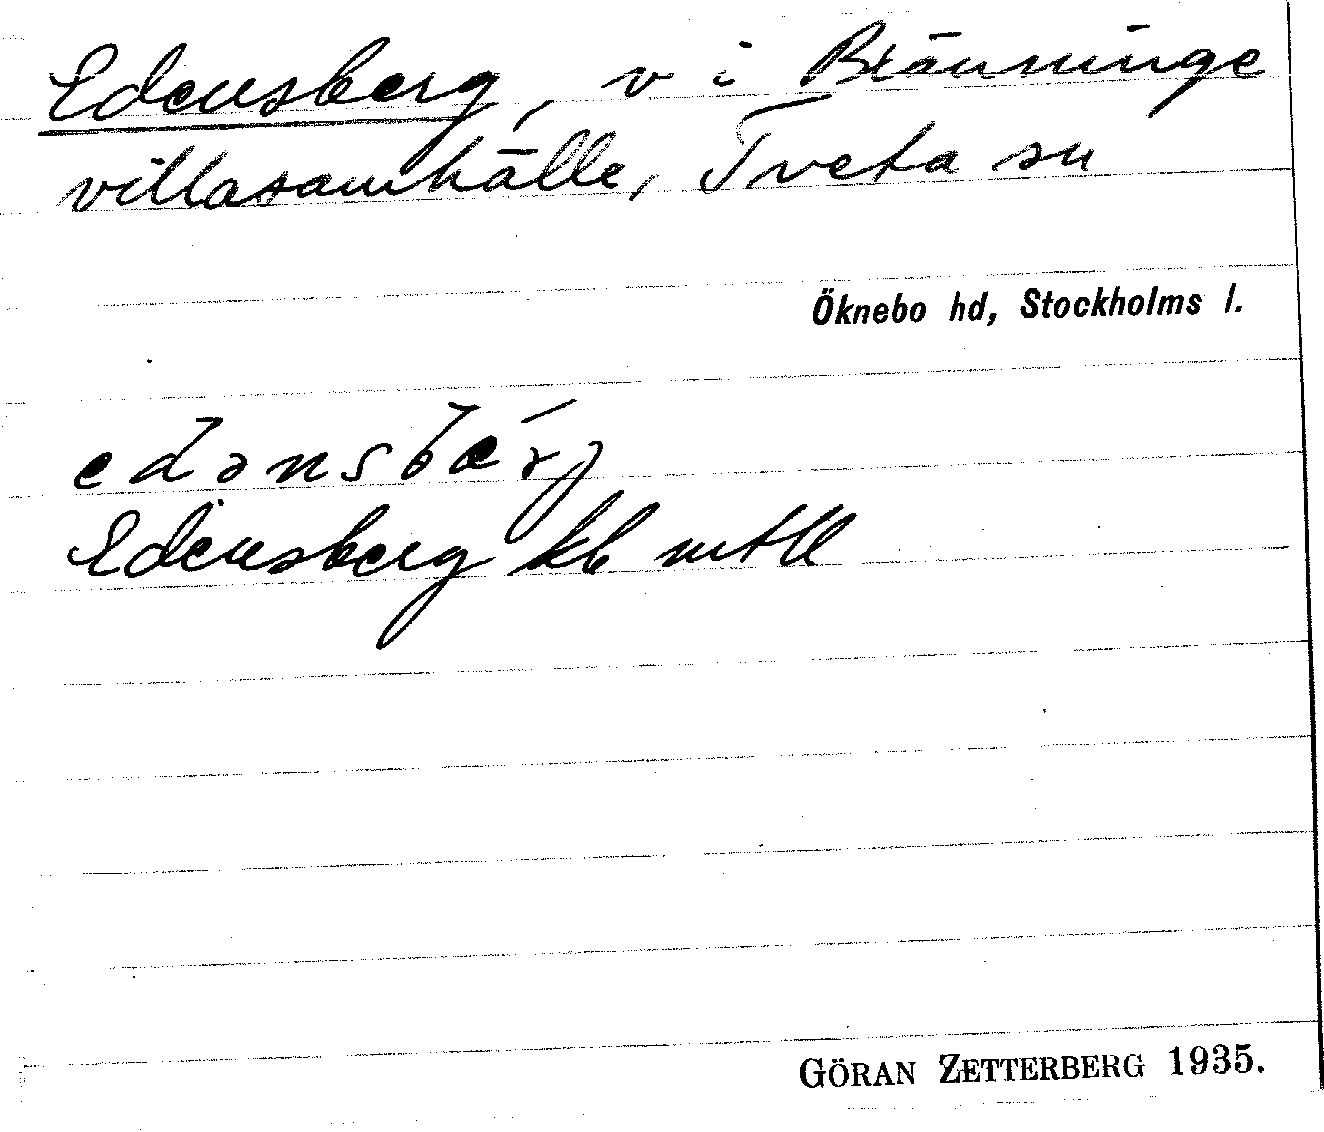 Edensberg, v i Bränninge
villasamhälle, Tveta sn
Öknebo hd, Stockholms l.
edənsbærj
Edensberg kb mtll
GÖRAN ZETTERBERG 1935.